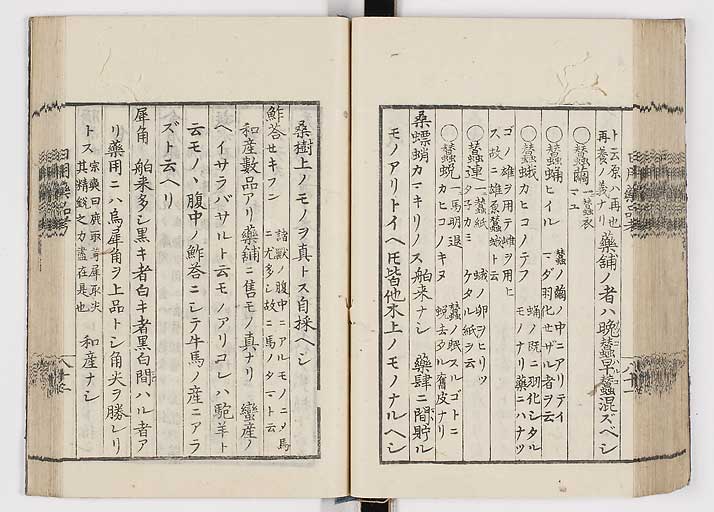 ト云原ハ再也
再養ノ義ナリ 藥舗ノ者ハ晩蠶早蠶混ズベシ
〇蠶繭 マユ 一 蠶衣
〇蠶蛹 ヒイル 蠶ノ繭ノ中ニアリテイ
マダ羽化セザル者ヲ云
〇蠶蛾 カヒコノテフ 蛹ノ既ニ羽化シタル
モノナリ藥ニハナツ
ゴノ雄ヲ用テ雌ヲ用ヒ
ス故ニ雄原蠶蛾ト云
〇蠶連 一 蠶紙 蛾ノ卵ヲヒリツ
ケタル紙ヲ云
〇蠶蛻 カヒコノキヌ 一 馬明退 蠶ノ眠スルゴトニ
蛻去タル舊皮ナリ
桑螵蛸 カマキリノス 舶来ナシ 藥肆ニ間貯ル
モノアリトイヘ𪜈皆他木上ノモノナルヘシ
桑樹上ノモノヲ真トス自採ヘシ
鮓荅 セキフン 諸獸ノ腹中ニアルモノニメ馬
ニ尤多シ故ニ馬ノタマト云
和産數品アリ藥舗ニ售モノ真ナリ 蠻産ノ
ヘイサラバサルト云モノアリコレハ駞羊ト
云モノヽ腹中ノ鮓荅ニシテ牛馬ノ産ニアラ
ズト云ヘリ
犀角 舶来多シ黒キ者白キ者黒白間ハル者ア
リ藥用ニハ烏犀角ヲ上品トシ角尖ヲ勝レリ
トス 宗奭曰鹿取茸犀取尖
其精鋭之力盡在是也 和産ナシ